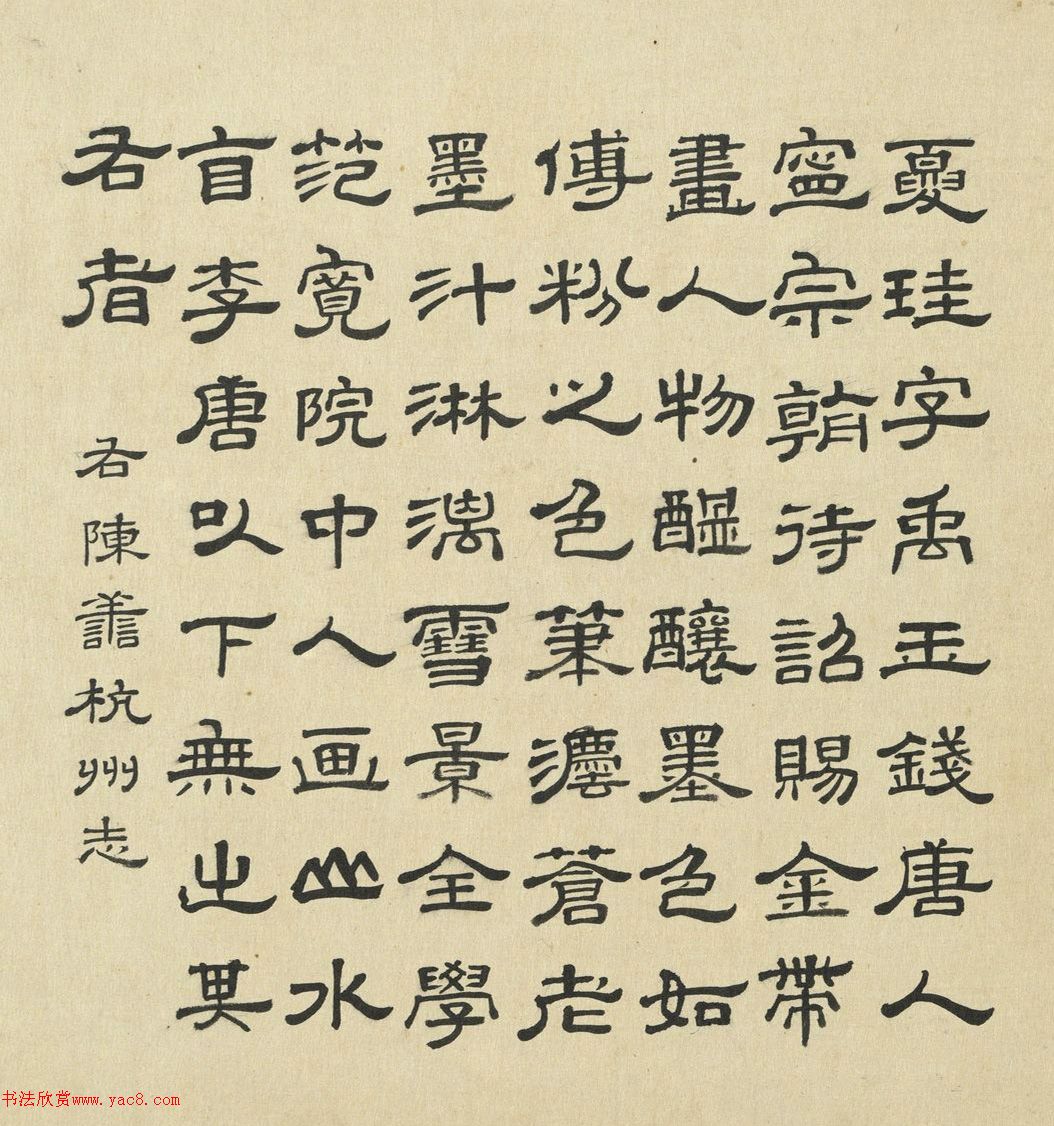 夏珪字禹玉錢唐人
寍宗朝待詔賜金帶
畫人物醞釀墨色如
傅粉之色筆灋蒼老
墨汁淋漓雪景全學
范寬院中人画山水
自李唐以下無出其
右者
右陳善杭州志
书法欣赏www.yac8.com